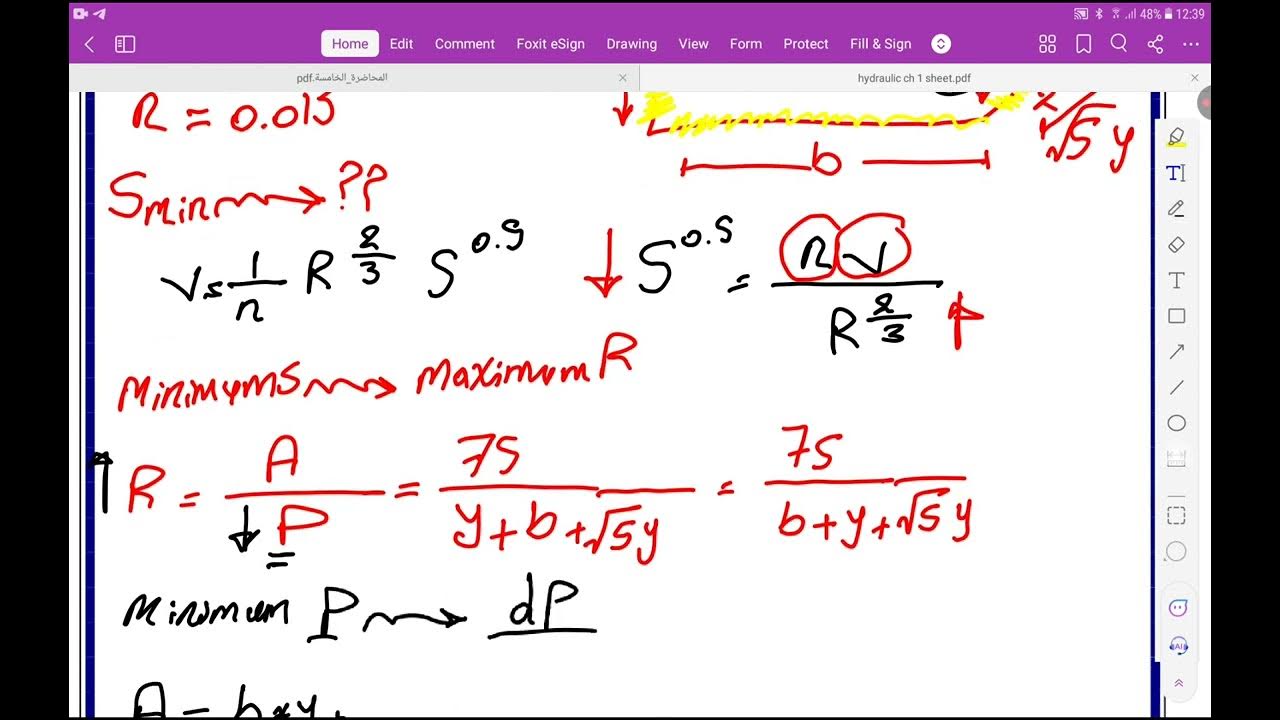 48% 12:39
Home Edit Comment Foxit eSign Drawing View Form Protect Fill & Sign
المحاضرة_الخامسة.pdf
hydraulic ch 1 sheet.pdf
R = 0.015
√5 y
b
Smin → ??
V = 1/n R^2/3 S^0.5
↓ S^0.5 = n V / R^2/3 ↑
minimum S → maximum R
↑ R = A / ↓ P = 75 / y + b + √5 y = 75 / b + y + √5 y
minimum P → dP
A = b * y +